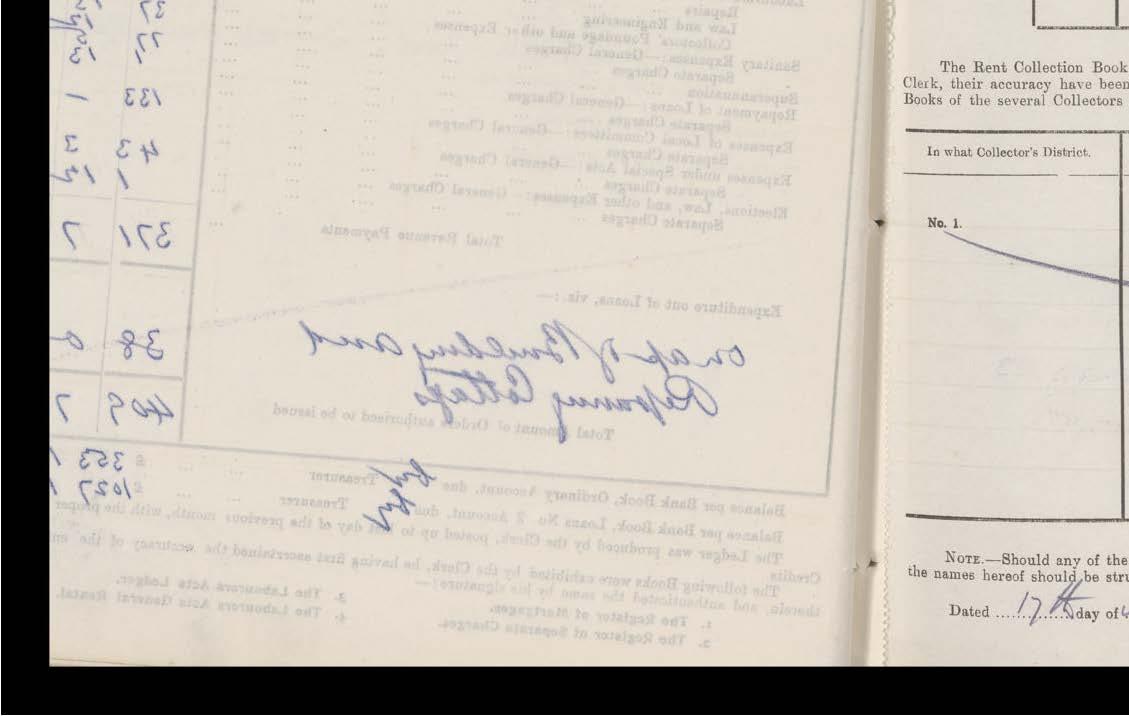 Repairs
Law and Engineering
Collectors' Poundage and other Expenses
Sanitary Expenses:—General Charges
Separate Charges
Superannuation
Repayment of Loans:—General Charges
Separate Charges
133 1
Expenses of Local Committees:—General Charges
Separate Charges
43 3
Expenses under Special Acts:—General Charges
Separate Charges
Elections, Law, and other Expenses:—General Charges
Separate Charges
Total Revenue Payments
371 7
Expenditure out of Loans, viz.:—
of Building and
Repairing Cottages
38 0
Total Amount of Orders authorised to be issued
409 7
Balance per Bank Book, Ordinary Account, due by Treasurer £ 353
Balance per Bank Book, Loans No. 2 Account, due by Treasurer £ 1027
The Ledger was produced by the Clerk, posted up to last day of the previous month, with the proper
Credits.
The following Books were exhibited by the Clerk, he having first ascertained the accuracy of the
therein, and authenticated the same by his signature:—
1. The Register of Mortgages.
2. The Register of Separate Charges.
3. The Labourers Acts Ledger.
4. The Labourers Acts General Rental.
The Rent Collection Book
Clerk, their accuracy have been
Books of the several Collectors
In what Collector's District.
No. 1.
NOTE.—Should any of the
the names hereof should be stru
Dated 17th day of